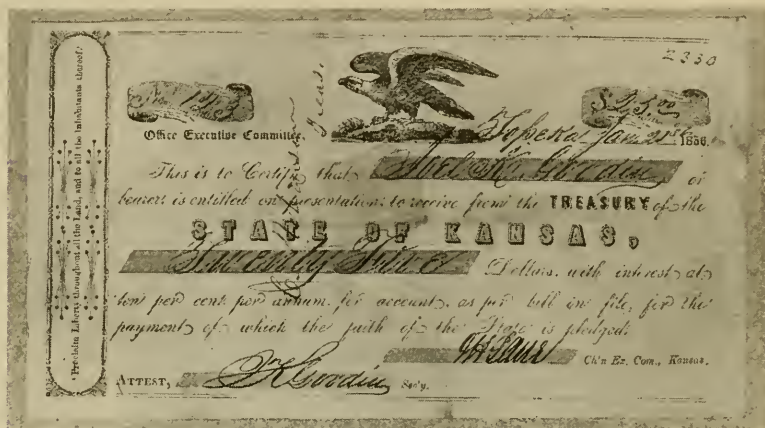 Proclaim Liberty throughout all the Land, and to all the Inhabitants thereof.
2330
No.
$25.00
Office Executive Committee.
Topeka Jan. 21st 1856.
This is to Certify that Joel K. Goodin or
bearer is entitled on presentation to receive from the TREASURY of the
STATE OF KANSAS,
Twenty Five Dollars, with interest at
ten per cent. per annum, for account, as per bill on file, for the
payment of which the faith of the State is pledged.
J H Lane Ch'n Ex. Com., Kansas.
ATTEST, J K Goodin Sec'y.